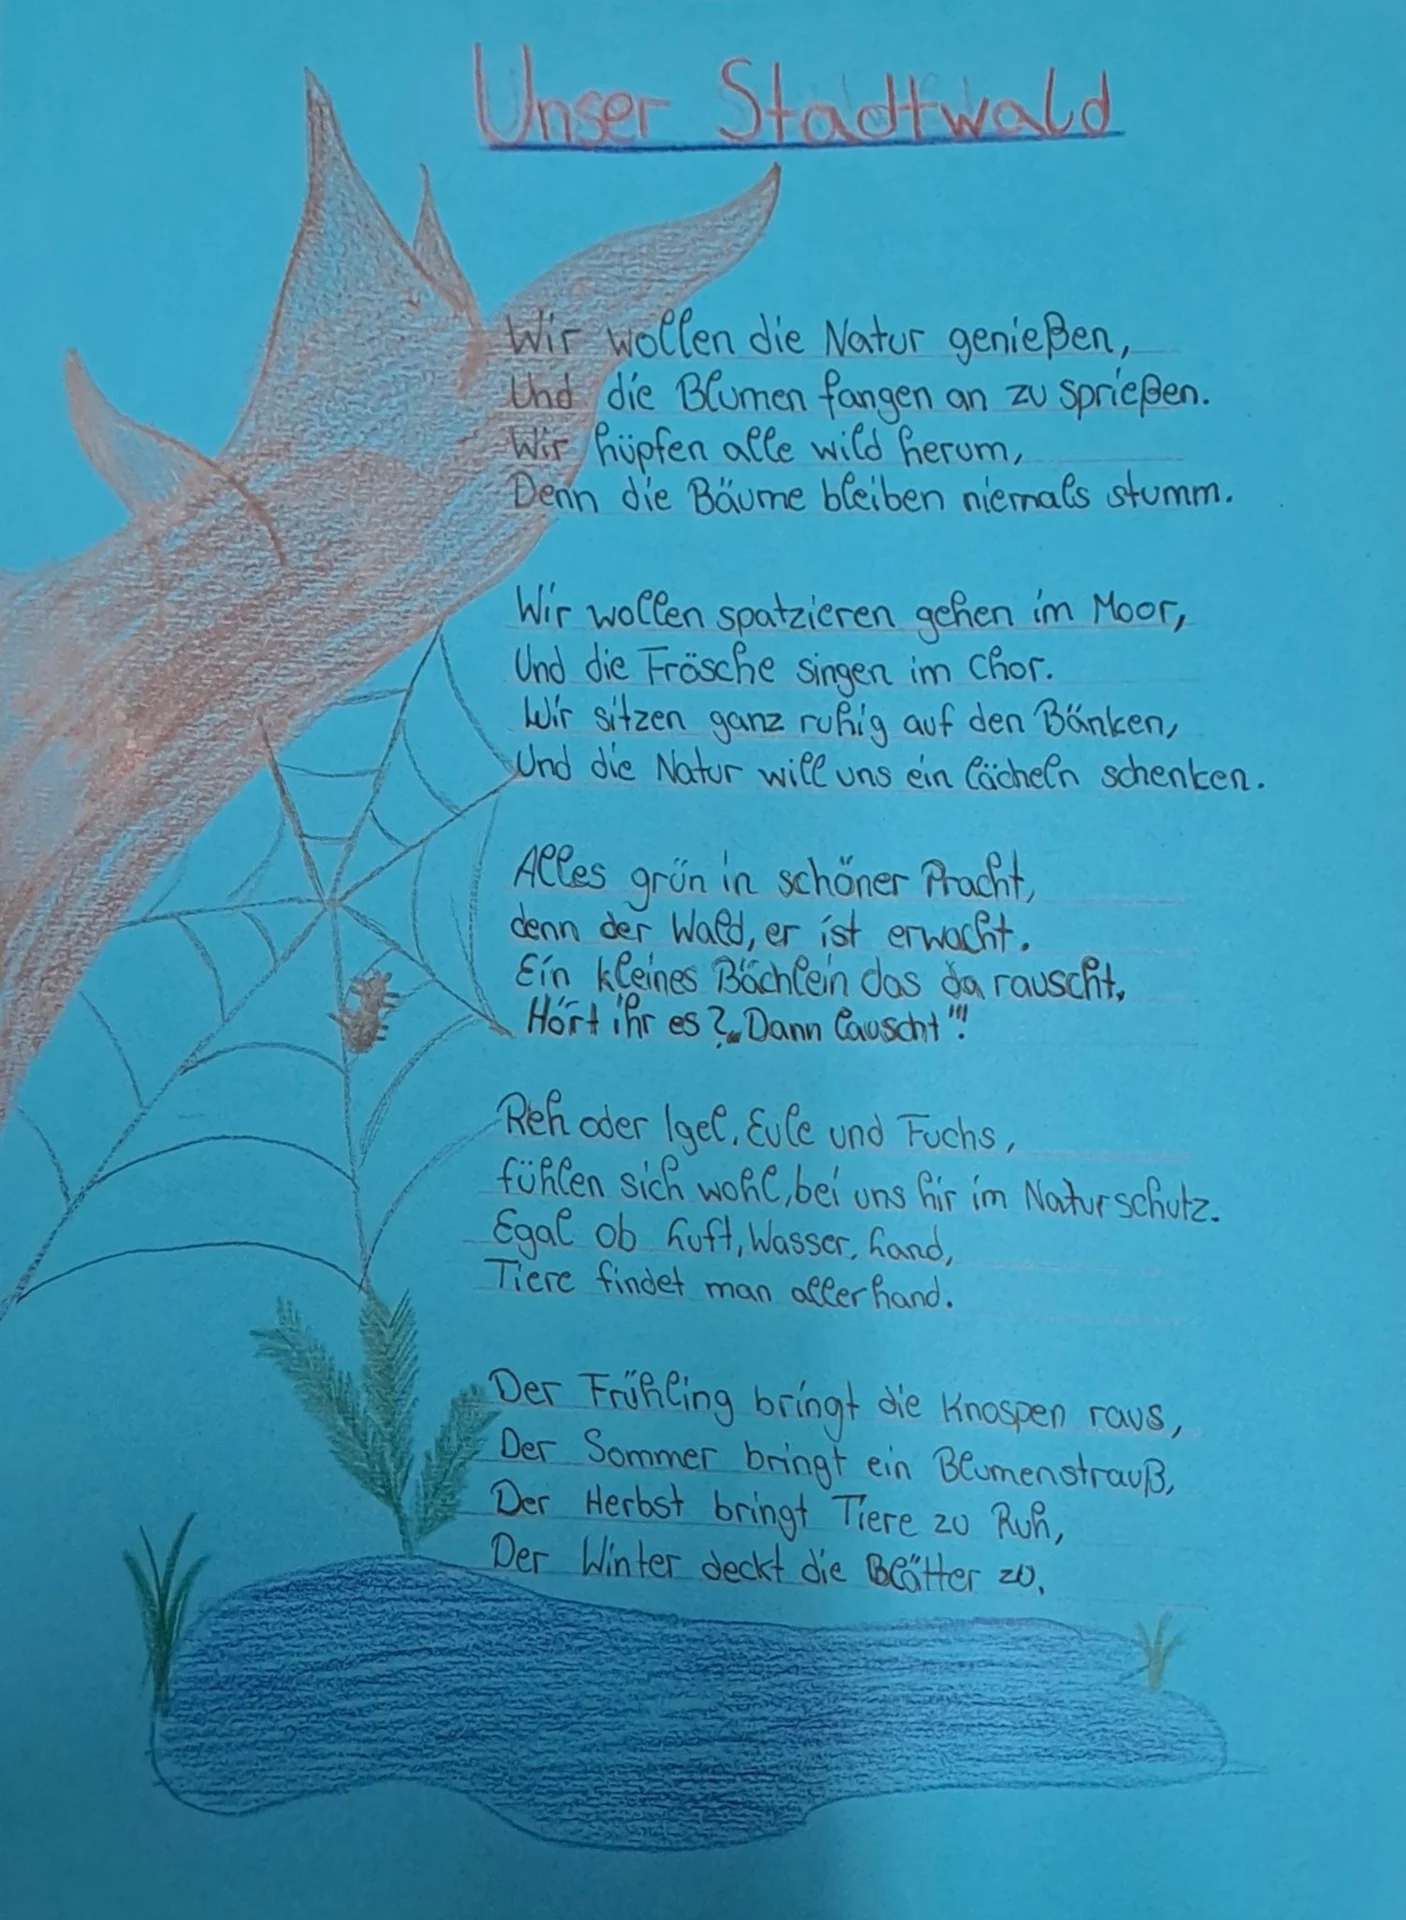 Unser Stadtwald
Wir wollen die Natur genießen,
Und die Blumen fangen an zu sprießen.
Wir hüpfen alle wild herum,
Denn die Bäume bleiben niemals stumm.
Wir wollen spatzieren gehen im Moor,
Und die Frösche singen im Chor.
Wir sitzen ganz ruhig auf den Bänken,
Und die Natur will uns ein lächeln schenken.
Alles grün in schöner Pracht,
denn der Wald, er ist erwacht.
Ein kleines Bächlein das da rauscht,
Hört ihr es? „Dann lauscht"!
Reh oder Igel, Eule und Fuchs,
fühlen sich wohl, bei uns hir im Naturschutz.
Egal ob Luft, Wasser, Land,
Tiere findet man allerhand.
Der Frühling bringt die Knospen raus,
Der Sommer bringt ein Blumenstrauß,
Der Herbst bringt Tiere zu Ruh,
Der Winter deckt die Blätter zu.